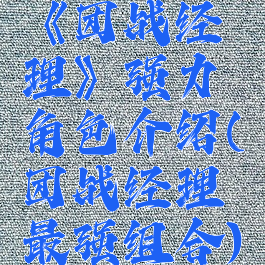 《团战经
理》强力
角色介绍(
团战经理
最强组合)